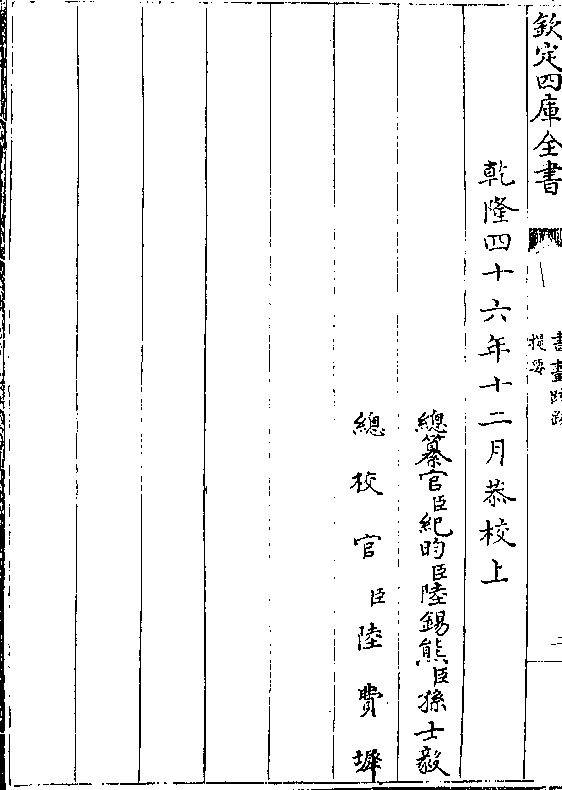 欽定四庫全書
書畫跋跋
提要
二
乾隆四十六年十二月恭校上
總纂官臣紀昀臣陸錫熊臣孫士毅
總校官臣陸費墀